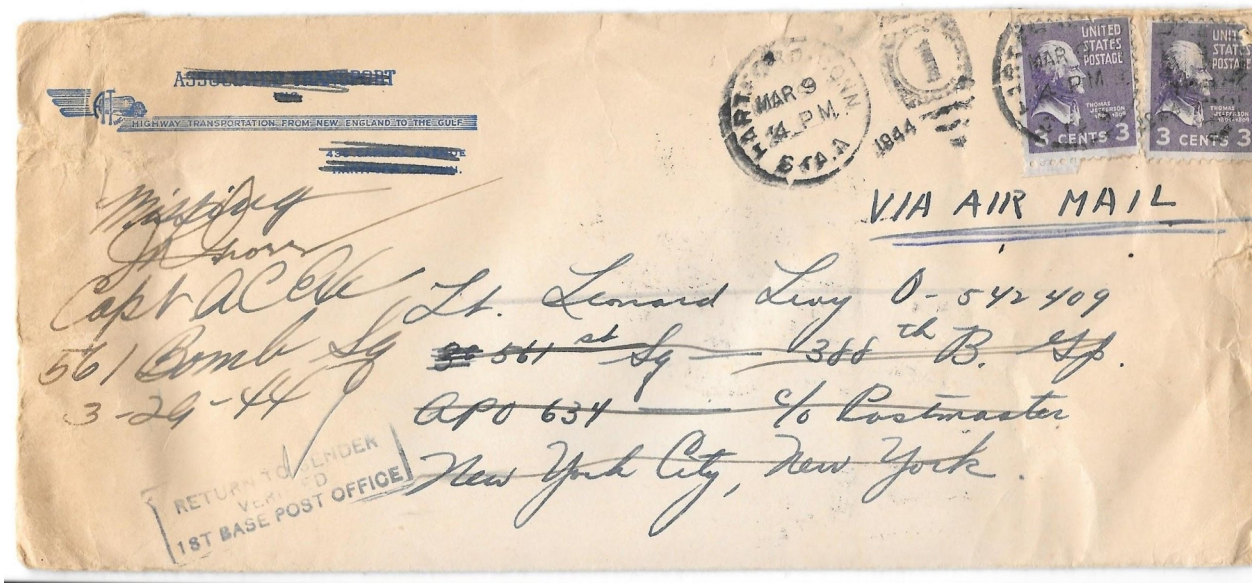 HIGHWAY TRANSPORTATION FROM NEW ENGLAND TO THE GULF
HARTFORD, CONN
MAR 9
4 PM
1944
1
UNITED
STATES
POSTAGE
THOMAS
JEFFERSON
3 CENTS 3
UNITED
STATES
POSTAGE
THOMAS
JEFFERSON
3 CENTS 3
VIA AIR MAIL
Missing
Capt AC
561 Bomb Sq
3-29-44
Lt. Leonard Levy O-542409
561st Sq — 388th B. Gp.
APO 634 — c/o Postmaster
New York City, New York.
RETURN TO SENDER
VERIFIED
1ST BASE POST OFFICE